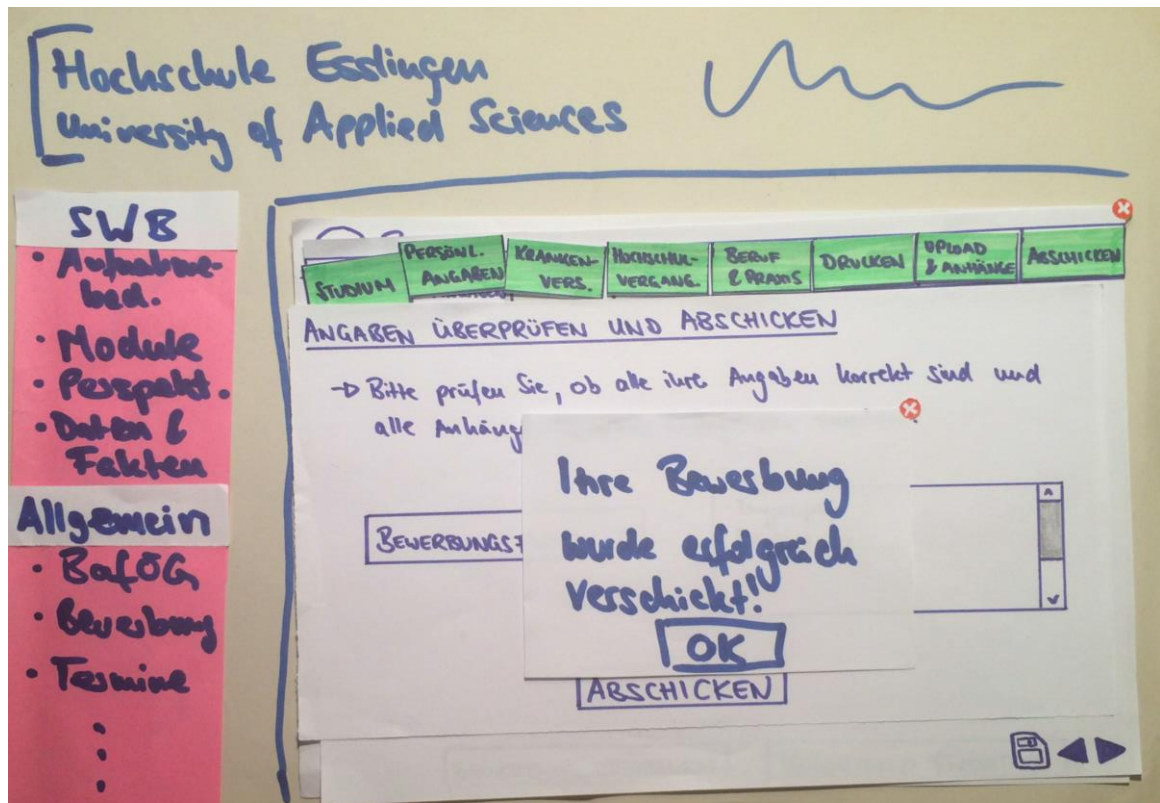 Hochschule Esslingen
University of Applied Sciences
SWB
• Aufnahme-
bed.
• Module
• Perspekt.
• Daten &
Fakten
Allgemein
• BafÖG
• Bewerbung
• Termine
STUDIUM
PERSÖNL.
ANGABEN
KRANKEN-
VERS.
HOCHSCHUL-
VERGANG.
BERUF
& PRAXIS
DRUCKEN
UPLOAD
& ANHÄNGE
ABSCHICKEN
ANGABEN ÜBERPRÜFEN UND ABSCHICKEN
→ Bitte prüfen Sie, ob alle ihre Angaben korrekt sind und
alle Anhäng
BEWERBUNGS
Ihre Bewerbung
wurde erfolgreich
verschickt!
OK
ABSCHICKEN